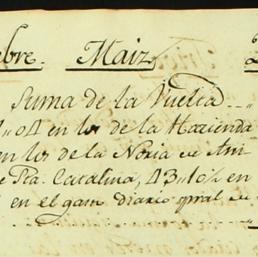 bre. Maiz
Suma de la Vuelta
04 en los de la Hazienda
en los de la Noria
e Sta. Catalina, 43,, 10½ en
en el gasto diario gral